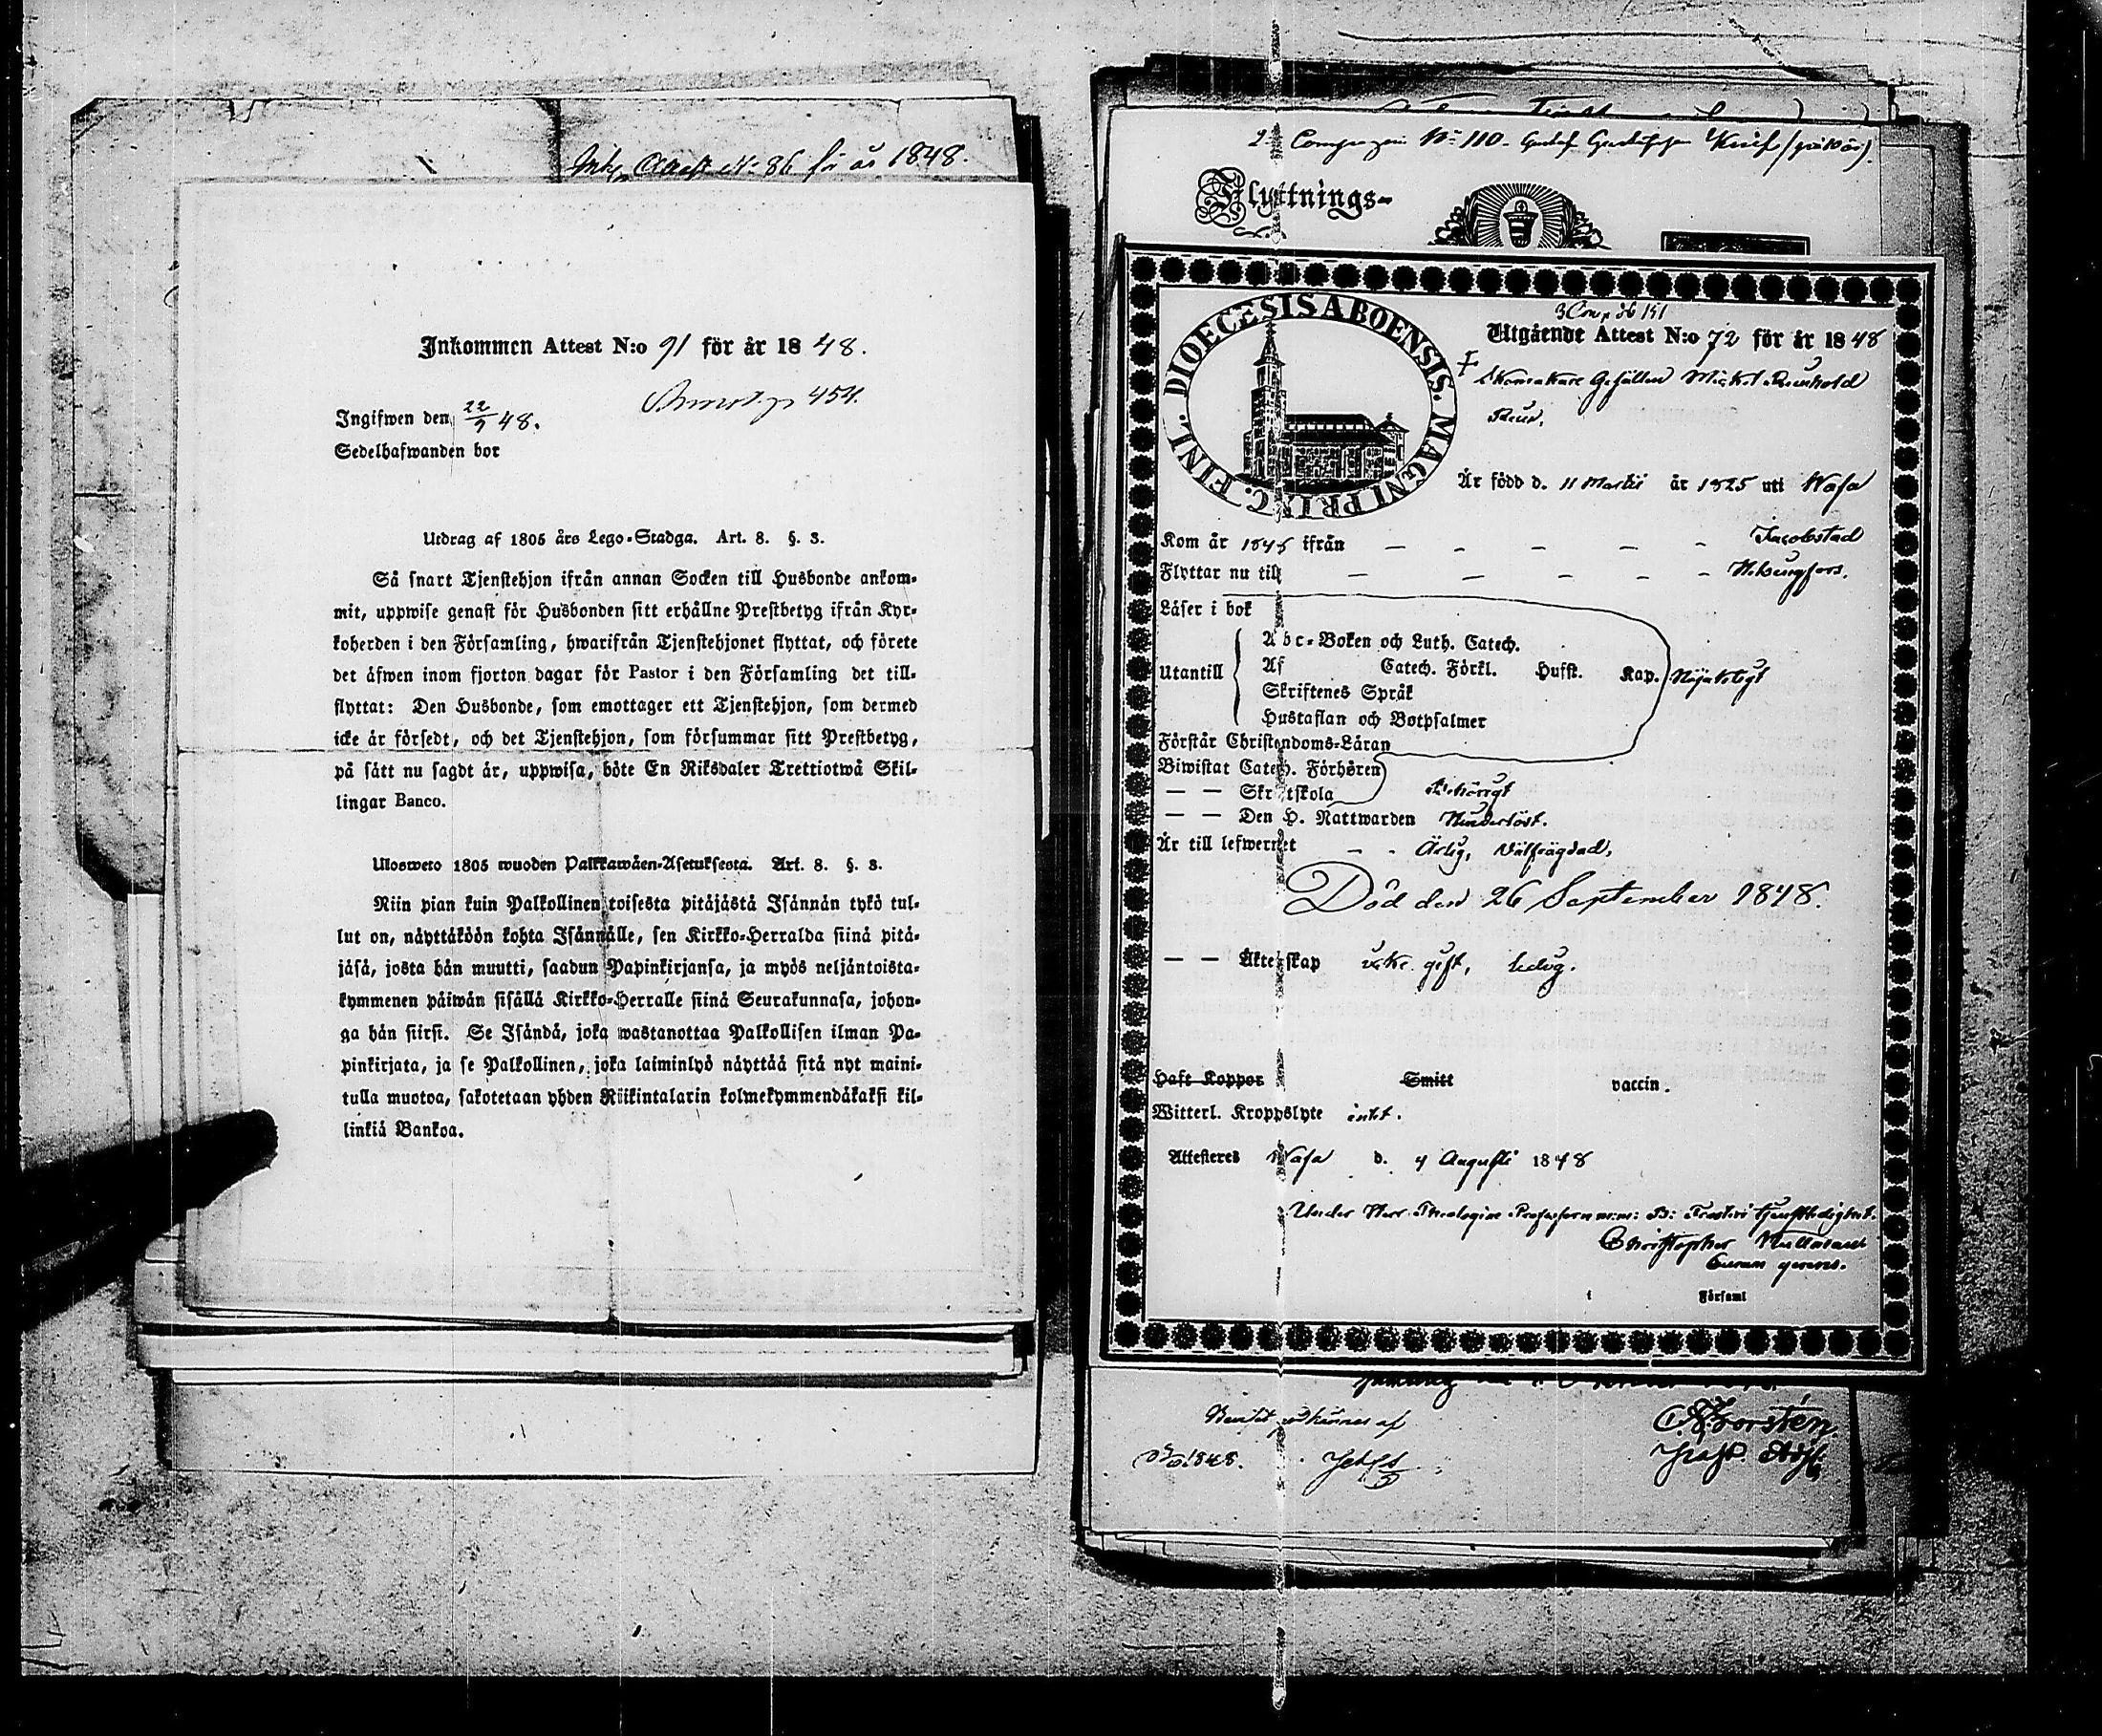 Attest No 86 för år 1848.
Inkommen Attest N:o 91 för år 1848.
454.
Ingifwen den 22/9 48.
Sedelhafwanden bor
Utdrag af 1805 års Lego-Stadga. Art. 8. §. 3.
Så snart Tjenstehjon ifrån annan Socken till Husbonde ankom-
mit, uppwise genast för Husbonden sitt erhållne Prestbetyg ifrån Kyr-
koherden i den Församling, hwarifrån Tjenstehjonet flyttat, och förete
det äfwen inom fjorton dagar för Pastor i den Församling det till-
flyttat: Den Husbonde, som emottager ett Tjenstehjon, som dermed
icke är försedt, och det Tjenstehjon, som försummar sitt Prestbetyg,
på sätt nu sagdt är, uppwisa, böte En Riksdaler Trettiotwå Skil-
lingar Banco.
Ulosweto 1805 wuoden Palkkawäen-Asetuksesta. Art. 8. §. 3.
Niin pian kuin Palkollinen toisesta pitäjästä Isännän tykö tul-
lut on, näyttäköön kohta Isännälle, sen Kirkko-Herralda siinä pitä-
jäsä, josta hän muutti, saadun Papinkirjansa, ja myös neljäntoista-
kymmenen päiwän sisällä Kirkko-Herralle siinä Seurakunnasa, johon-
ga hän siirsi. Se Isändä, joka wastanottaa Palkollisen ilman Pa-
pinkirjata, ja se Palkollinen, joka laiminlyö näyttää sitä nyt maini-
tulla muotoa, sakotetaan yhden Riikintalarin kolmekymmendäkaksi kil-
linkiä Bankoa.
2 Compagni No 110. Gustaf Gustafsson
Flyttnings-
DIOECESIS ABOENSIS. MAGNI PRINC. FINL.
3 Comp 151
Utgående Attest N:o 72 för år 1848
Skomakare Gesällen Mickel Reinhold
Är född d. 11 Martii år 1825 uti Wasa
Kom år 1845 ifrån — — — — — Jacobstad
Flyttar nu till — — — — — H:lsingfors.
Läser i bok
Abc-Boken och Luth. Catech.
Utantill Af Catech. Förkl. Husst. Kap. Nöjaktigt
Skriftenes Språk
Hustaflan och Botpsalmer
Förstår Christendoms-Läran
Biwistat Catech. Förhören
— — Skriftskola Behörigt
— — Den H. Nattwarden Hinderlöst.
Är till lefwernet - - Ärlig, Välfrägdad,
Död den 26 September 1848.
— — Äktenskap icke gift, ledig.
Haft Koppor Smitt vaccin.
Witterl. Kroppslyte intet.
Attesteres Wasa d. 4 Augusti 1848
Under Herr Theologiae Professorn m:m: tjenstledighet.
Christopher
Curam gerens.
Församl
af
1848.